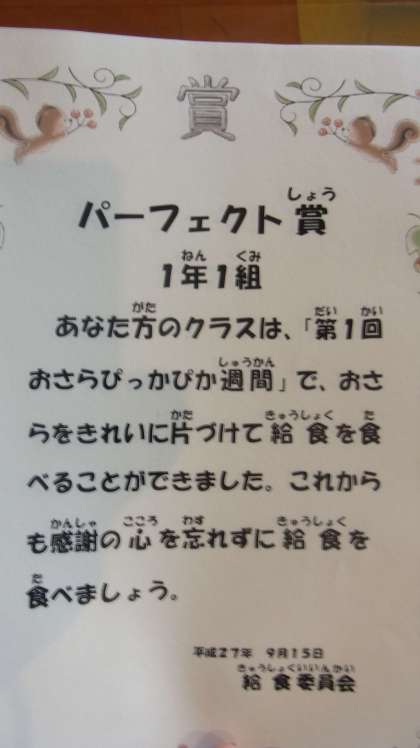 賞
パーフェクト賞
しょう
1年1組
ねん くみ
あなた方のクラスは、「第1回
がた だい かい
おさらぴっかぴか週間」で、おさ
しゅうかん
らをきれいに片づけて給食を食
かた きゅうしょく た
べることができました。これから
も感謝の心を忘れずに給食を
かんしゃ こころ わす きゅうしょく
食べましょう。
た
平成27年 9月15日
給食委員会
きゅうしょくいいんかい